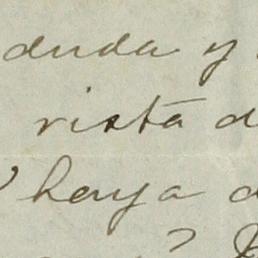 duda y
vista d
haya d
?